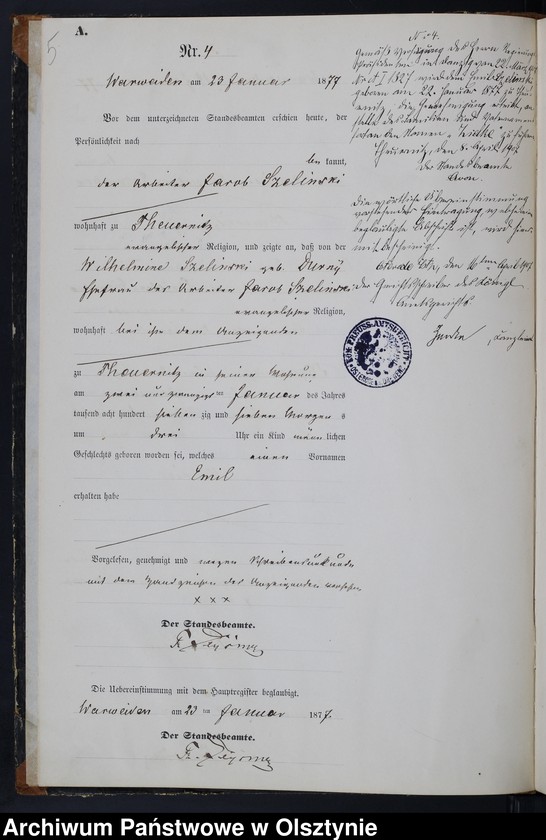 5
A.
Nr. 4
Warweiden am 23 Januar 1877
Vor dem unterzeichneten Standesbeamten erschien heute, der
Persönlichkeit nach
be kannt,
der Arbeiter Jacob Szelinski
wohnhaft zu Theuernitz
evangelischer Religion, und zeigte an, daß von der
Wilhelmine Szelinski geb. Durny
Ehefrau des Arbeiter Jacob Szelinski
evangelischer Religion,
wohnhaft bei ihm dem Anzeigenden
zu Theuernitz in seiner Wohnung
am zwei und zwanzigs ten Januar des Jahres
tausend acht hundert sieben zig und sieben Morgen s
um drei Uhr ein Kind männ lichen
Geschlechts geboren worden sei, welches einen Vornamen
Emil
erhalten habe
Vorgelesen, genehmigt und wegen Schreibensunkunde
mit dem Handzeichen des Anzeigenden versehen
x x x
Der Standesbeamte.
Die Uebereinstimmung mit dem Hauptregister beglaubigt.
Warweiden am 23 ten Januar 1877.
Der Standesbeamte.
No. 4.
Gemäß Verfügung des Herrn Regierungs
präsidenten in Danzig vom 22. März
geboren am 22. Januar 1877 zu Theu
ernitz, die Genehmigung erteilt, an
Stelle des Familien
den Namen zu führen.
Theuernitz, den 8. April
Der Standesbeamte
Die wörtliche Übereinstimmung
vorstehender Eintragung
beglaubigte Abschrift ist, wird hier
mit bescheinigt.
Osterode Ostpr., den 16 ten April
der Gerichtsschreiber des Königl.
Amtsgerichts.
KÖN. PREUSS. AMTSGERICHT
Archiwum Państwowe w Olsztynie